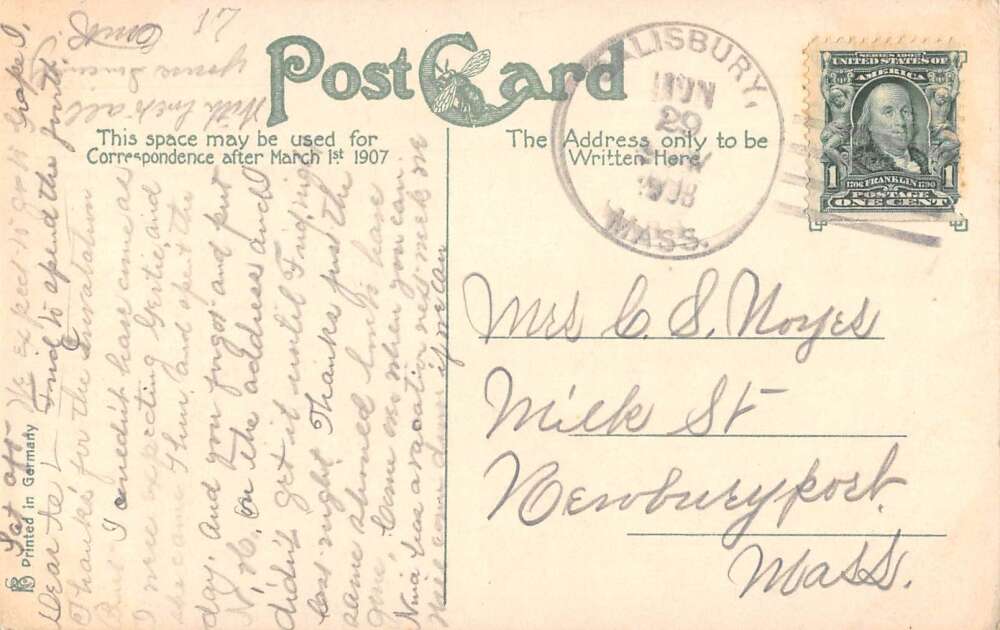 Post Card
This space may be used for
Correspondence after March 1st 1907
The Address only to be
Written Here
SALISBURY,
JUN
29
1908
MASS.
SERIES 1902
UNITED STATES OF
AMERICA
1 1706 FRANKLIN 1790 1
POSTAGE
ONE CENT
Mrs C. S. Noyes
Milk St
Newburyport.
Mass.
Printed in Germany
Sat aft
We expect to go to Grape I,
and to spend the fourth.
Thanks for the invatation
But I couldn't have come as
I was expecting Gertie, and
she came Thur, and spent the
day. And you forgot and put
N. H. on the address and I
didn't get it until Fri, night
last night. Thanks just the
same should love to have
gone, Come over when you can
Nina has a vacation next week we
will come down if we can
With love to all
yours